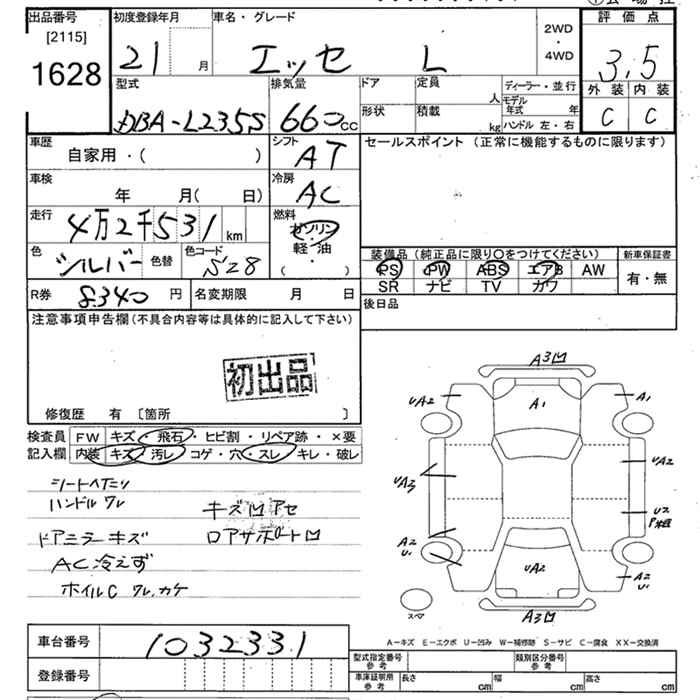 出品番号
[2115]
1628
初度登録年月
21 月
車名・グレード
エッセ L
2WD
・
4WD
評価点
3.5
外装 内装
C C
型式
DBA-L235S
排気量
660cc
ドア
形状
定員
人
積載
kg
ディーラー・並行
モデル
年式 年
ハンドル 左・右
車歴
自家用・( )
シフト
AT
セールスポイント (正常に機能するものに限ります)
車検
年 月( 日)
冷房
AC
走行
4万2千531km
燃料
ガソリン
軽・油
( ・ )
色
シルバー
色替
色コード
S28
装備品(純正品に限り○をつけてください)
PS PW ABS エアB AW
SR ナビ TV カワ
新車保証書
有・無
R券 8340円
名変期限 月 日
後日品
注意事項申告欄(不具合内容等は具体的に記入して下さい)
初出品
修復歴 有 [箇所 ]
検査員
記入欄
FW キズ・飛石・ヒビ割・リペア跡・×要
内装 キズ・汚レ・コゲ・穴・スレ・キレ・破レ
シートヘタリ
ハンドル ワレ
キズ凹 アセ
ドアミラー キズ
ロアサポート凹
AC冷えず
ホイルC ワレ、カケ
A3凹
UA2
A1
A1
UA3
UA2
U2
A2
U1
UA2
A2
U1
スペア
A3凹
A-キズ E-エクボ U-凹み W-補修跡 S-サビ C-腐食 XX-交換済
車台番号
1032331
登録番号
型式指定番号
参考
類別区分番号
参考
車庫証明用
参考
長さ cm
幅 cm
高さ cm